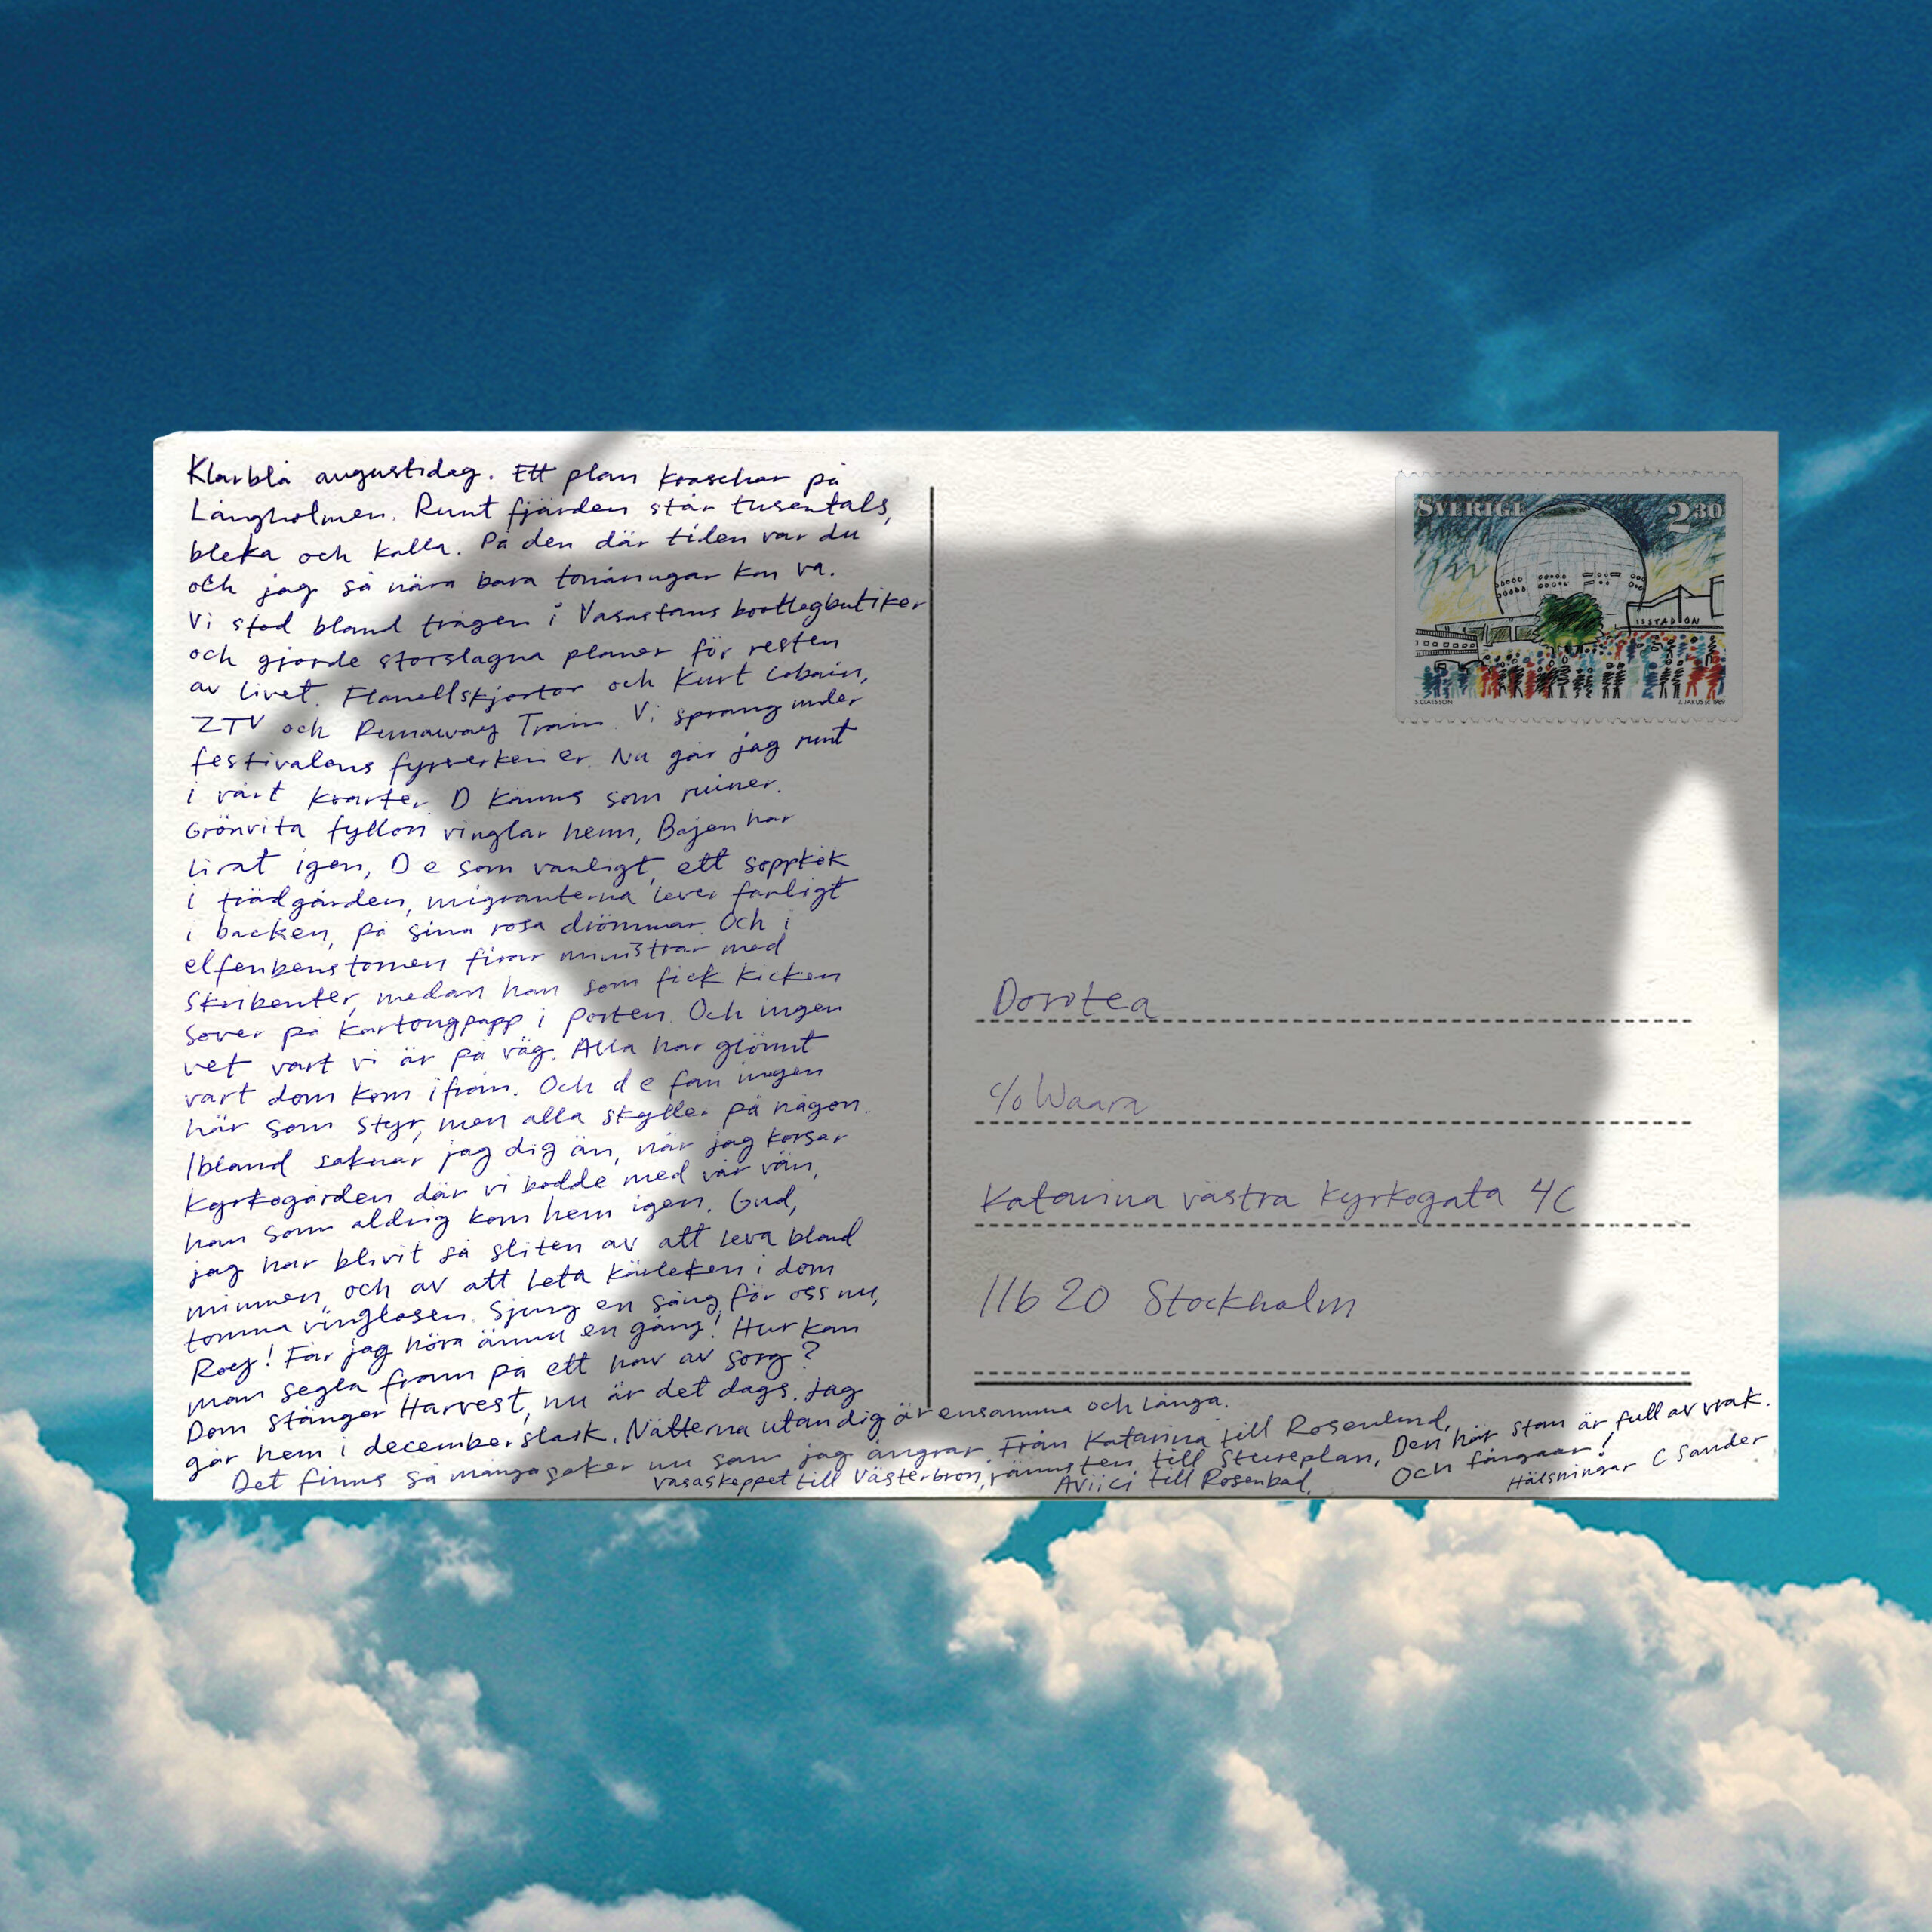 Klarblå augustidag. Ett plan kraschar på
Långholmen. Runt fjärden står tusentals,
bleka och kalla. På den där tiden var du
och jag så nära bara tonåringar kan va.
Vi stod bland trågen i Vasastans bootlegbutiker
och gjorde storslagna planer för resten
av livet. Flanellskjortor och Kurt Cobain,
ZTV och Runaway Train. Vi sprang under
festivalens fyrverkerier. Nu går jag runt
i vårt kvarter. D känns som ruiner.
Grönvita fyllon vinglar hem, Bajen har
lirat igen, D e som vanligt, ett soppkök
i trädgården, migranterna lever farligt
i backen, på sina rosa drömmar. Och i
elfenbenstornen firar ministrar med
skribenter, medan han som fick kicken
sover på kartongpapp i porten. Och ingen
vet vart vi är på väg. Alla har glömt
vart dom kom ifrån. Och d e fan ingen
här som styr, men alla skyller på någon.
Ibland saknar jag dig än, när jag korsar
kyrkogården där vi bodde med vår vän,
han som aldrig kom hem igen. Gud,
jag har blivit så sliten av att leva bland
minnen, och av att leta kärleken i dom
tomma vinglasen. Sjung en sång för oss nu,
Roy! Får jag höra ännu en gång! Hur kan
man segla fram på ett hav av sorg?
Dom stänger Harvest, nu är det dags. Jag
går hem i decemberslask. Nätterna utan dig är ensamma och långa.
Det finns så många saker nu som jag ångrar. Från Katarina till Rosenlund,
Vasaskeppet till Västerbron, tjänsten till Stureplan, Den här stan är full av vrak.
Aviici till Rosenbad. Och fångaar!
Hälsningar C Sander
SVERIGE 2 30
ISSTADION
S CLAESSON
Z. JAKUS SC 1989
Dorotea
c/o Waara
Katarina västra kyrkogata 4C
116 20 Stockholm